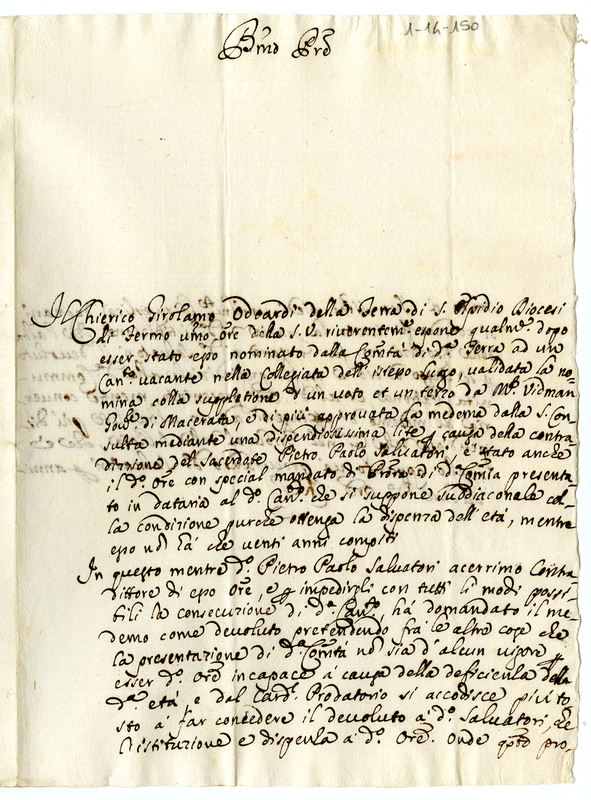 1-14-150
Bmo Pre
Il Chierico Girolamo Odoardi della Terra di S. Elpidio Diocesi
di Fermo umo Ore della S. V. riverentemte. espone qualmte. dopo
esser stato esso nominato dalla Comtà di da. Terra ad un
Canto. vacante nella Collegiata dell'istesso luogo, validata la no=
mina colla suppletione d'un voto et un terzo da Mr. Vidman
Govre. di Macerata, e di più approvata la medema dalla S. Con=
sulta mediante una dispendiosissima lite p causa della contra=
dizzione del Sacerdote Pietro Paolo Salvatori, è stato anche
il do. Ore con special mandato di Procra. di da. Comtà presenta=
to in dataria al do. Canto. che si suppone suddiaconale col=
la condizione purche ottenga la dispenza dell'età, mentre
esso nō hà che venti anni compiti
In questo mentre do. Pietro Paolo Salvatori acerrimo Contra=
dittore di esso Ore, e p impedirgli con tutti li modi possi=
bili la consecuzione di do. Canto. hà domandato il me=
demo come devoluto pretendendo frà le altre cose che
la presentazione di da. Comtà nō sia d'alcun vigore p
esser do. Ore incapace à causa della deficienza della
da. età, e dal Card. Prodatario si accodisce più to
sto à far concedere il devoluto à do. Salvatori, che
l'istituzione e dispensa à do. Ore. Onde qsto pro,